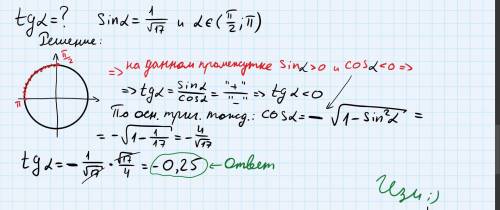 tgα = ? sinα = 1/√17 и α∈(π/2; π)
Решение:
π/2
π
=> на данном промежутке sinα>0 и cosα<0 =>
=> tgα = sinα/cosα = "+"/"-" => tgα<0
По осн. триг. тожд.: cosα = -√(1-sin²α) =
= -√(1-1/17) = -4/√17
tgα = -1/√17 · √17/4 = -0,25 ← Ответ
Изи ;)